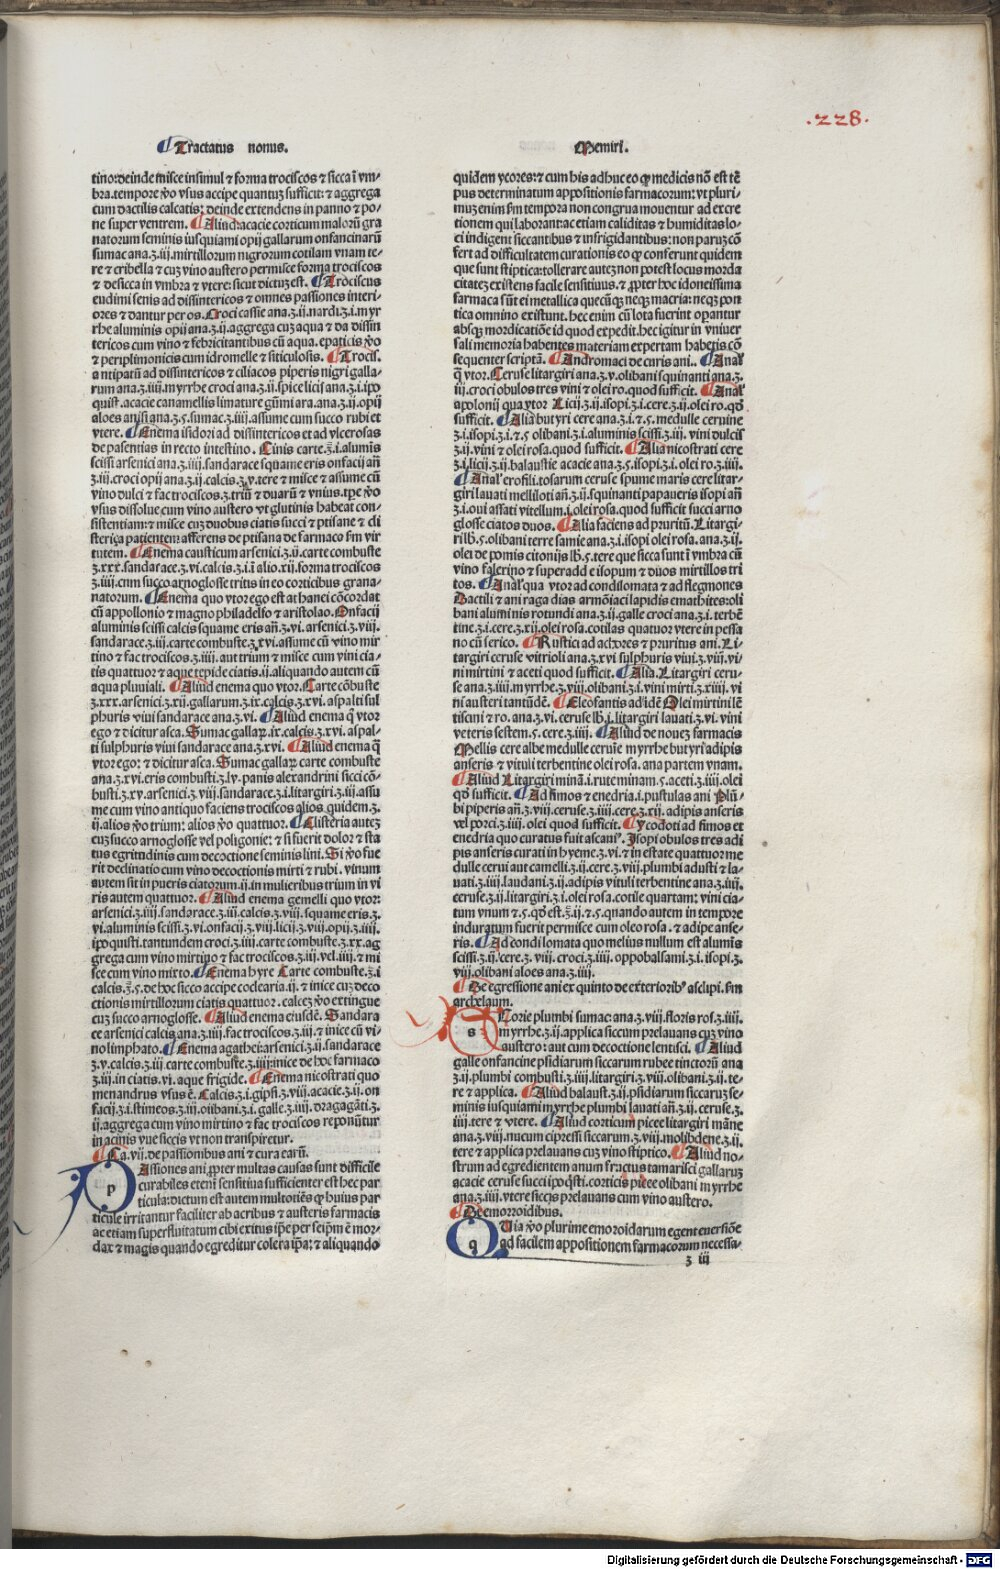 .228.
Tractatus nonus.
Memiri.
tino:deinde misce insimul ⁊ forma trociscos ⁊ sicca ī vm-
bra.tempore v̄o vsus accipe quantuꝫ sufficit: ⁊ aggrega
cum dactilis calcatis: deinde extendens in panno ⁊ po-
ne super ventrem. Aliud:acacie corticum malorū gra
natorum seminis iusquiami opij gallarum onfancinarū
sumac ana.ʒ.iij.mirtillorum nigrorum cotilam vnam te-
re ⁊ cribella ⁊ cuꝫ vino austero permisce forma trociscos
⁊ desicca in vmbra ⁊ vtere: sicut dictuꝫ est. Trociscus
eudimi senis ad dissintericos ⁊ omnes passiones interi-
ores ⁊ dantur per os. Croci cassie ana.ʒ.ii.nardi.ʒ.i.myr
rhe aluminis opij ana.ʒ.ij.aggrega cuꝫ aqua ⁊ da dissin
tericos cum vino ⁊ febricitantibus cū aqua. epaticis v̄o
⁊ periplimonicis cum idromelle ⁊ siticulosis. Trocis.
antipatū ad dissintericos ⁊ ciliacos piperis nigri galla-
rum ana.ʒ.iiij.myrrhe croci ana.ʒ.ij.spice licij ana.ʒ.i.ipo
quist.acacie canamellis limature gūmi ara.ana.ʒ.ij.opij
aloes anisi ana.ʒ.5.sumac.ʒ.iiij.assume cum succo rubi et
vtere. Enema isidori ad dissintericos et ad vlcerosas
depasentias in recto intestino. Cinis carte.ʒ̄.i.alumīs
scissi arsenici ana.ʒ.iij.sandarace squame eris onfacij an̄
ʒ.iij.croci opij ana.ʒ.ij.calcis.ʒ.v.tere ⁊ misce ⁊ assume cū
vino dulci ⁊ fac trociscos.ʒ.triū ⁊ duarū ⁊ vnius.tp̄e v̄o
vsus dissolue cum vino austero vt glutinis habeat con-
sistentiam:⁊ misce cuꝫ duobus ciatis succi ⁊ ptisane ⁊ cli
steriça patientem afferens de ptisana de farmaco ẜm vir
tutem. Enema causticum arsenici.ʒ.ij.carte combuste
ʒ.xxx.sandarace.ʒ.vi.calcis.ʒ.i.ī alio.xij.forma trociscos
ʒ.iiij.cum succo arnoglosse tritis in eo corticibus grana-
natorum. Enema quo vtor ego est athanei cōcordat
cū appollonio ⁊ magno philadelfo ⁊ aristolao. Onfacij
aluminis scissi calcis squame eris an̄.ʒ.vi.arsenici.ʒ.viij.
sandarace.ʒ.iij.carte combuste.ʒ.xvi.assume cū vino mir
tino ⁊ fac trociscos.ʒ.iiij.aut trium ⁊ misce cum vini cia-
tis quattuor ⁊ aque tepide ciatis.ij.aliquando autem cū
aqua pluuiali. Aliud enema quo vtor. Carte cōbuste
ʒ.xxx.arsenici.ʒ.xij.gallarum.ʒ.ix.calcis.ʒ.xvi.aspalti sul
phuris viui sandarace ana.ʒ.vi. Aliud enema q̄ vtor
ego ⁊ dicitur asca. Sumac gallaꝝ.ix.calcis.ʒ.xvi.aspal-
ti sulphuris viui sandarace ana.ʒ.xvi. Aliud enema q̄
vtor ego: ⁊ dicitur asca. Sumac gallaꝝ carte combuste
ana.ʒ.xvi.eris combusti.ʒ.lv.panis alexandrini sicci cō-
busti.ʒ.xv.arsenici.ʒ.viij.sandarace.ʒ.i.litargiri.ʒ.iij.assu
me cum vino antiquo faciens trociscos alios quidem.ʒ.
ij.alios v̄o trium: alios v̄o quattuor. Clisteria auteꝫ
cuꝫ succo arnoglosse vel poligonie: ⁊ si fuerit dolor ⁊ sta
tus egritudinis cum decoctione seminis lini. Si v̄o fue
rit declinatio cum vino decoctionis mirti ⁊ rubi. vinum
autem sit in pueris ciatorum.ij.in mulieribus trium in vi
ris autem quattuor. Aliud enema gemelli quo vtor:
arsenici.ʒ.iiij.sandarace.ʒ.iij.calcis.ʒ.viij.squame eris.ʒ.
vi.aluminis scissi.ʒ.vi.onfacij.ʒ.viij.licij.ʒ.viij.opij.ʒ.iiij.
ipoquisti.tantundem croci.ʒ.iiij.carte combuste.ʒ.xx.ag
grega cum vino mirtino ⁊ fac trociscos.ʒ.iij.vel.iiij.⁊ mi
sce cum vino mixto. Enema hyre Carte combuste.ʒ̄.i
calcis.ʒ̄.5.de hoc sicco accipe coclearia.ij.⁊ inice cuꝫ deco
ctionis mirtillorum ciatis quattuor.calceꝫ v̄o extingue
cuꝫ succo arnoglosse. Aliud enema eiusdē. Sandara
ce arsenici calcis ana.ʒ.iiij.fac trociscos.ʒ.iij.⁊ inice cū vi-
no limphato. Enema agathei:arsenici.ʒ.ij.sandarace
ʒ.v.calcis.ʒ.iij.carte combuste.ʒ.iiij:inice de hoc farmaco
ʒ.iij.in ciatis.vi.aque frigide. Enema nicostrati quo
menandrus vsus ē. Calcis.ʒ.i.gipsi.ʒ.viij.acacie.ʒ.ij.on
facij.ʒ.i.stimeos.ʒ.iij.olibani.ʒ.i.galle.ʒ.iiij.dragagāti.ʒ.
ij.aggrega cum vino mirtino ⁊ fac trociscos reponūtur
in acinis vue siccis vt non transpiretur.
Ca.vij.de passionibus ani ⁊ cura earū.
p
Assiones ani ꝓpter multas causas sunt difficile
curabiles etenī sensitiua sufficienter est hec par
ticula:dictum est autem multotiēs ꝙ huius par
ticule irritantur faciliter ab acribus ⁊ austeris farmacis
ac etiam superfluitatum cibi exitus ip̄e per seip̄m ē mor-
dax ⁊ magis quando egreditur colera ip̄a: ⁊ aliquando
quidem ycores:⁊ cum his adhuc eo ꝙ medicis nō est tē
pus determinatum appositionis farmacorum: vt pluri-
muꝫ enim ẜm tempora non congrua mouentur ad excre
tionem qui laborant:ac etiam caliditas ⁊ humiditas lo-
ci indigent siccantibus ⁊ infrigidantibus:non paruꝫ cō
fert ad difficultatem curationis eo ꝙ conferunt quidem
que sunt stiptica:tollerare auteꝫ non potest locus morda
citateꝫ existens facile sensitiuus.⁊ ꝓpter hoc idoneissima
farmaca sūt ei metallica quecūqꝫ neqꝫ macria: neqꝫ pon
tica omnino existunt.hec enim cū lota fuerint operantur
absqꝫ mordicatiōe id quod expedit.hec igitur in vniuer
sali memoria habentes materiam expertam habetis cō
sequenter scriptā. Andromaci de curis ani.. Anal'
q̄ vtor. Ceruse litargiri ana.ʒ.v.olibani squinanti ana.ʒ.
ij.croci obulos tres vini ⁊ olei ro.quod sufficit. Anal'
apolonij qua vtor Licij.ʒ.ij.isopi.ʒ.i.cere.ʒ.ij.olei ro.qd̄
sufficit. Alia butyri cere ana.ʒ.i.⁊.5.medulle ceruine
ʒ.i.isopi.ʒ.i.⁊.5 olibani.ʒ.i.aluminis scissi.ʒ.iij. vini dulcis
ʒ.ij.vini ⁊ olei rosa.quod sufficit. Alia nicostrati cere
ʒ.i.licij.ʒ.ij.balaustie acacie ana.ʒ.5.isopi.ʒ.i.olei ro.ʒ.iiij.
Anal' erofili.rosarum ceruse spume maris cere litar-
giri lauati melliloti an̄.ʒ.ij.squinanti papaueris isopi an̄
ʒ.i.oui assati vitellum.i.olei rosa.quod sufficit succi arno
glosse ciatos duos. Alia faciens ad pruritū. Litargi-
ri lb̄.5.olibani terre samie ana.ʒ.i.isopi olei rosa.ana.ʒ.ij.
olei de pomis citonijs lb̄.5.tere que sicca sunt ī vmbra cū
vino falerino ⁊ superadde isopum ⁊ duos mirtillos tri
tos. Anal' qua vtor ad condilomata ⁊ ad flegmones
Dactili ⁊ ani ragadias armōiaci lapidis emathites:oli
bani aluminis rotundi ana.ʒ.ij.galle croci ana.ʒ.i.terbē
tine.ʒ.i.cere.ʒ.xij.olei rosa.cotilas quatuor vtere in pessa
no cū serico. Rustici ad achores ⁊ pruritus ani. Li-
targiri ceruse vitrioli ana.ʒ.xvi sulphuris viui.ʒ.viij.vi-
ni mirtini ⁊ aceti quod sufficit. Alia. Litargiri ceru-
se ana.ʒ.iiij.myrrhe.ʒ.viij.olibani.ʒ.i.vini mirti.ʒ.xiiij.vi
ni austeri tantūdē. Cleofantis ad idē Olei mirtini lē
tiscini ⁊ ro.ana.ʒ.vi.ceruse lb̄.i.litargiri lauati.ʒ.vi. vini
veteris sestem.5.cere.ʒ.iiij. Aliud de noueꝫ farmacis
Mellis cere albe medulle ceruine myrrhe butyri adipis
anseris ⁊ vituli terbentine olei rosa.ana partem vnam.
Aliud Litargiri minā.i.rute minam.5.aceti.ʒ.iiij.olei
qd̄ sufficit. Ad fimos ⁊ enedria.i.pustulas ani Plū-
bi piperis an̄.ʒ.viij.ceruse.ʒ.iiij.cere.ʒ.xij.adipis anseris
vel porci.ʒ.iiij.olei quod sufficit. Ycodoti ad fimos et
enedria quo curatus fuit ascaniꝰ. Isopi obulos tres adi
pis anseris curati in hyeme.ʒ.vi.⁊ in estate quattuor me
dulle cerui aut cameli.ʒ.ij.cere.ʒ.viij plumbi adusti ⁊ la-
uati.ʒ.iiij.laudani.ʒ.ij.adipis vituli terbentine ana.ʒ.iiij.
ceruse.ʒ.ij.litargiri.ʒ.i.olei rosa.cotile quartam: vini cia-
tum vnum ⁊.5.qd̄ est.ʒ̄.ij.⁊.5.quando autem in tempore
induratum fuerit permisce cum oleo rosa.⁊ adipe anse-
ris. Ad condilomata quo melius nullum est alumīs
scissi.ʒ.ij.cere.ʒ.viij.croci.ʒ.iiij.oppobalsami.ʒ.i.isopi.ʒ.
viij.olibani aloes ana.ʒ.iiij.
De egressione ani ex quinto de exterioribꝰ asclipi. ẜm
archelaum.
s
Corie plumbi sumac: ana.ʒ.viij.floris ros̄.ʒ.iiij.
myrrhe.ʒ.ij.applica siccum prelauans cuꝫ vino
austero: aut cum decoctione lentisci. Aliud
galle onfancine psidiarum siccarum rubee tinctorū ana
ʒ.ij.plumbi combusti.ʒ.iiij.litargiri.ʒ.viij.olibani.ʒ.ij.te-
re ⁊ applica. Aliud balaust.ʒ.ij.psidiarum siccaruꝫ se-
minis iusquiami myrrhe plumbi lauati an̄.ʒ.ij.ceruse.ʒ.
iiij.tere ⁊ vtere. Aliud corticum picee litargiri māne
ana.ʒ.viij.nucum cipressi siccarum.ʒ.viij.molibdene.ʒ.ij.
tere ⁊ applica prelauans cuꝫ vino stiptico. Aliud no-
strum ad egredientem anum fructus tamarisci gallaruꝫ
acacie ceruse succi ipoq̄sti.corticis picee olibani myrrhe
ana.ʒ.iiij.vtere siccis prelauans cum vino austero.
De emorroidibus.
q
Via v̄o plurime emoroidarum egent euersiōe
ad facilem appositionem farmacorum necessa-
ʒ iij
Digitalisierung gefördert durch die Deutsche Forschungsgemeinschaft - DFG